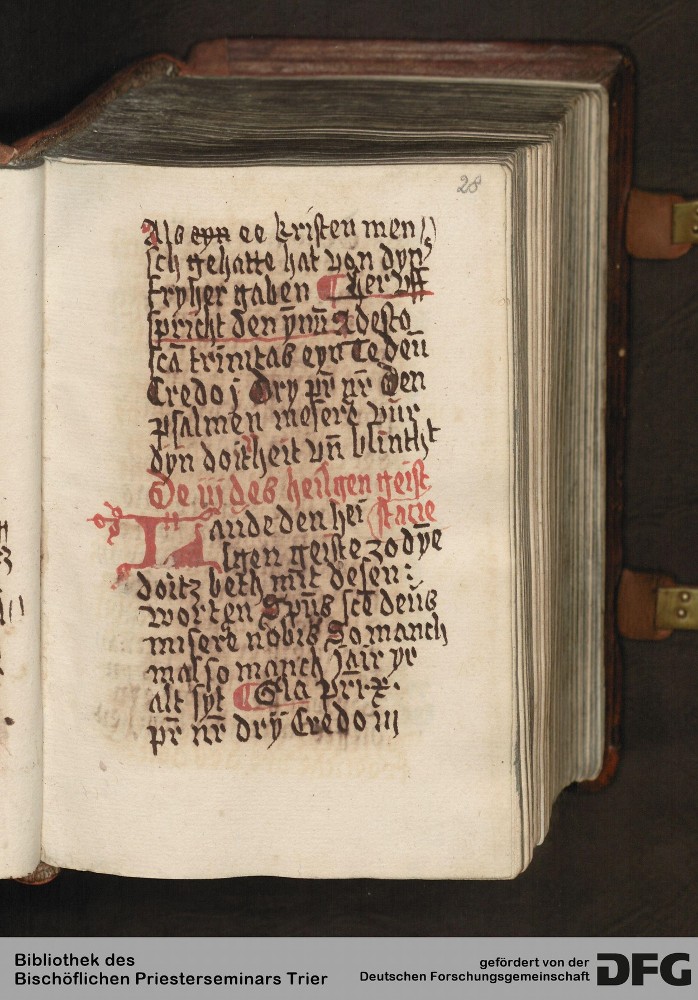 28
Als eyn ee kristen men
sch gehatte hat von dyn
fryher gaben Her vff
spricht den ymū Adesto
scā trinitas eyn Te deū
Credo j Dry pr̄ nr̄ Den
psalmen miserē vur
dyn doitheit vn̄ blintht
De iij des heilgen geist
ande den hei statie
lgen geiste zo dȳe
doitz beth mit desen:
worten Spūs scē deus
miserē nobis So manch
mal so manch jair yr
alt syt Gla pr̄i.
pr̄ nr̄ drÿ Credo iij
Bibliothek des
Bischöflichen Priesterseminars Trier
gefördert von der
Deutschen Forschungsgemeinschaft DFG